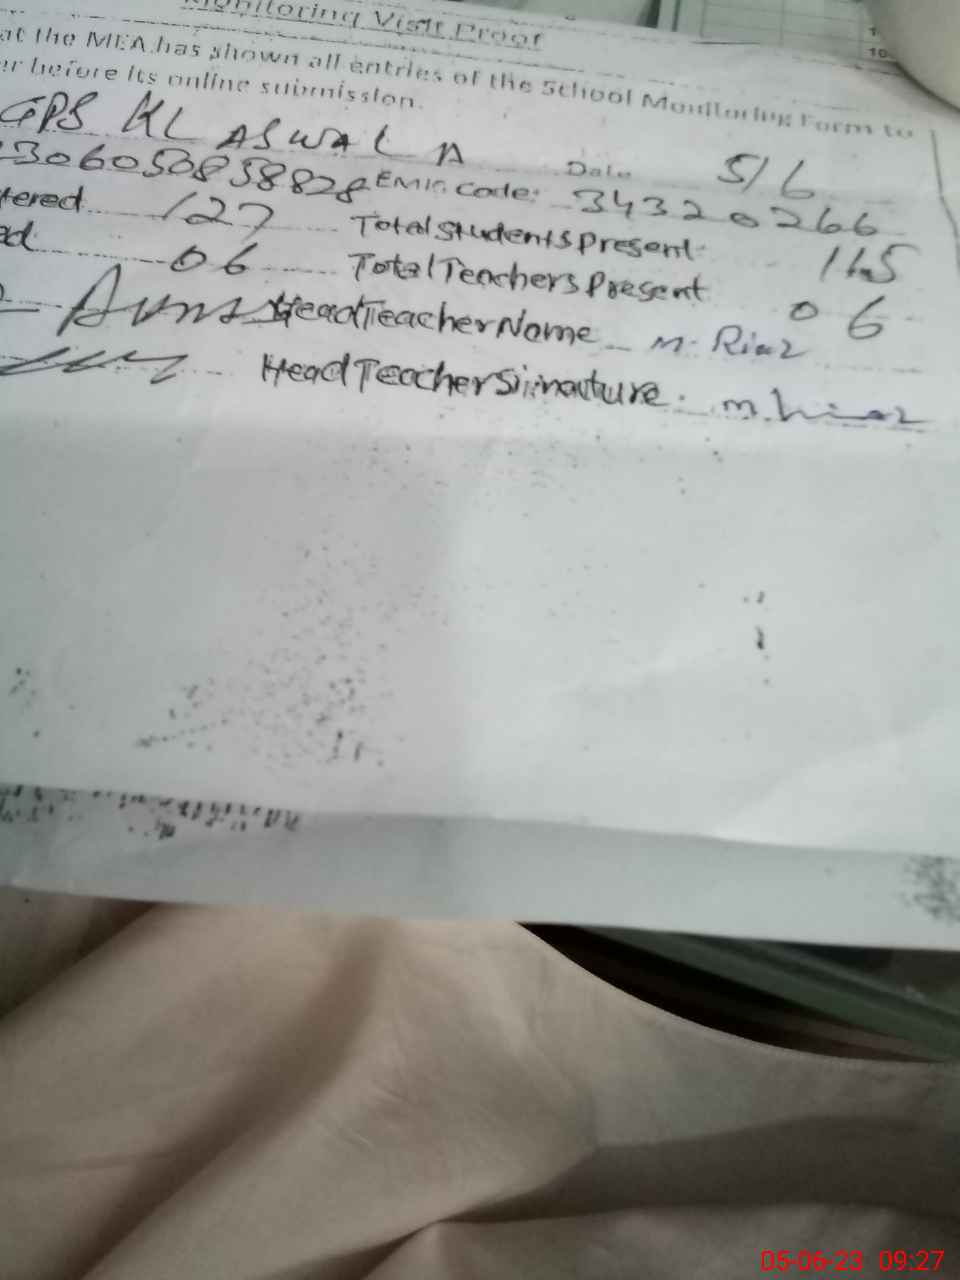 Monitoring Visit Proof
at the MEA has shown all entries of the School Monitoring Form to
before its online submission.
GPS KL ASWAL A Date 5/6
306050858828 EMIS Code: 34320266
tered 127 Total Students Present 115
ed 06 Total Teachers Present 06
Head Teacher Name M. Riaz
Head Teacher Signature
10
05-06-23 09:27